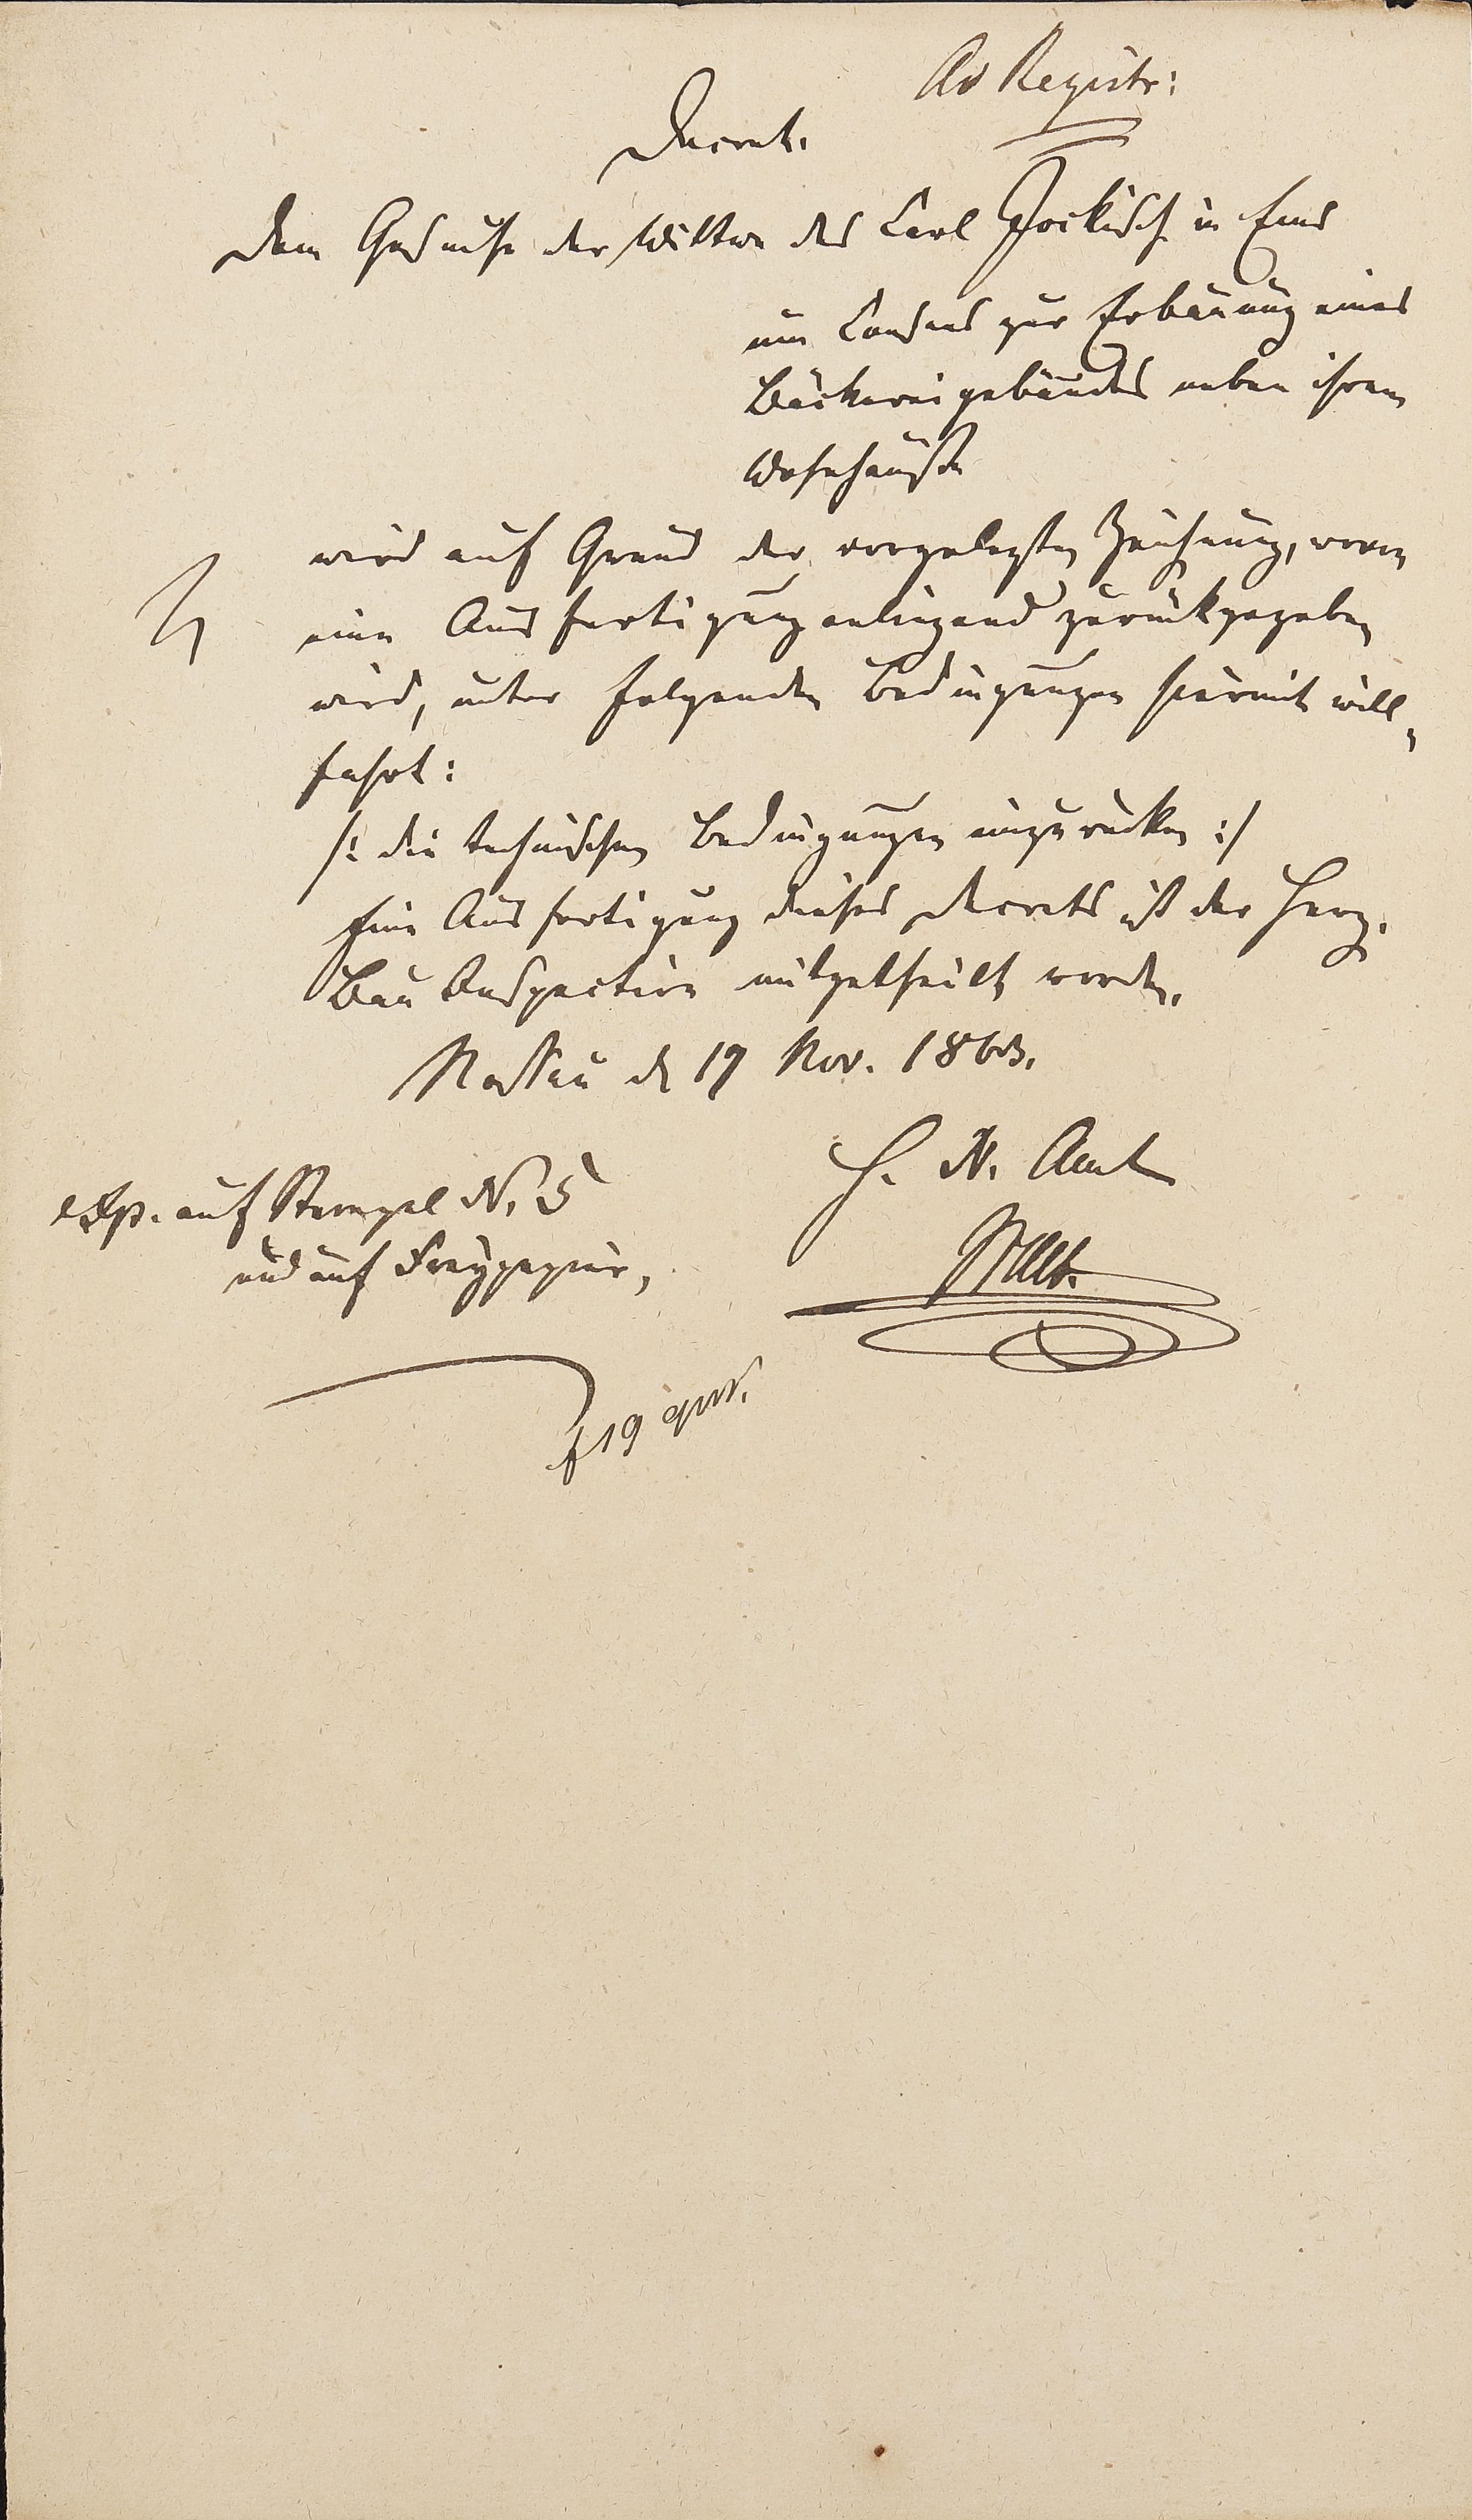 Ad Registr:
Decret.
Dem Gesuche der Wittwe des Carl Jockisch in Ems
um Consens zur Erbauung eines
Bäckereigebäudes neben ihrem
Wohnhause
wird auf Grund der vorgelegten Zeichnung, wovon
eine Ausfertigung anliegend zurückgegeben
wird, unter folgenden Bedingungen hiermit will-
fahrt:
/: die technischen Bedingungen einzurücken :/
Eine Ausfertigung dieses Decrets ist der Herz.
Bau Inspection mitgetheilt worden.
Nassau d 19 Nov. 1863.
H. N. Amt
exp. auf Stempel N. 5
und auf Freypapier,
f 19